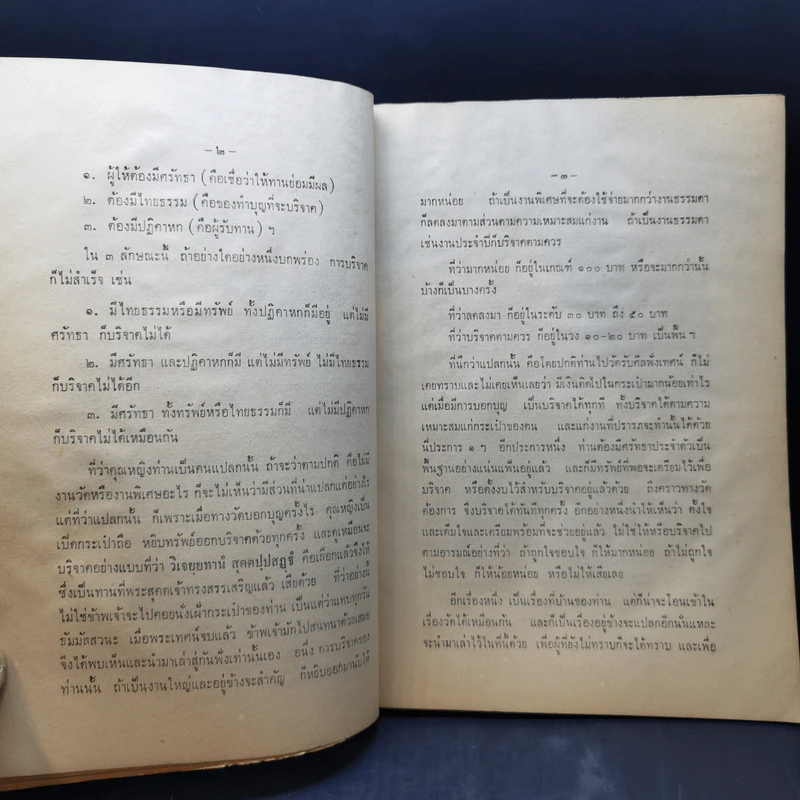 - ๒ -
๑. ผู้ให้ต้องมีศรัทธา (คือเชื่อว่าให้ทานย่อมมีผล)
๒. ต้องมีไทยธรรม (คือของทำบุญที่จะบริจาค)
๓. ต้องมีปฏิคาหก (คือผู้รับทาน) ฯ
ใน ๓ ลักษณะนี้ ถ้าอย่างใดอย่างหนึ่งบกพร่อง การบริจาค
ก็ไม่สำเร็จ เช่น
๑. มีไทยธรรมหรือมีทรัพย์ ทั้งปฏิคาหกก็มีอยู่ แต่ไม่มี
ศรัทธา ก็บริจาคไม่ได้
๒. มีศรัทธา และปฏิคาหกก็มี แต่ไม่มีทรัพย์ ไม่มีไทยธรรม
ก็บริจาคไม่ได้อีก
๓. มีศรัทธา ทั้งทรัพย์หรือไทยธรรมก็มี แต่ไม่มีปฏิคาหก
ก็บริจาคไม่ได้เหมือนกัน
ที่ว่าคุณหญิงท่านเป็นคนแปลกนั้น ถ้าจะว่าตามปกติ คือไม่มี
งานวัดหรืองานพิเศษอะไร ก็จะไม่เห็นว่ามีส่วนที่น่าแปลกแต่อย่างไร
แต่ที่ว่าแปลกนั้น ก็เพราะเมื่อทางวัดบอกบุญครั้งไร คุณหญิงเป็น
เปิดกระเป๋าถือ หยิบทรัพย์ออกบริจาคด้วยทุกครั้ง และดูเหมือนจะ
บริจาคอย่างแบบที่ว่า วิเจยฺยทานํ สุคตปฺปสฏฺฐํ คือเลือกแล้วจึงให้
ซึ่งเป็นทานที่พระสุคตเจ้าทรงสรรเสริญแล้ว เสียด้วย ที่ว่าอย่างนี้
ไม่ใช่ข้าพเจ้าจะไปคอยนั่งเฝ้ากระเป๋าของท่าน เป็นแต่ว่าแทบทุกวัน
ธัมมัสสวนะ เมื่อพระเทศน์จบแล้ว ข้าพเจ้ามักไปสนทนาด้วยเสมอ
จึงได้พบเห็นและนำมาเล่าสู่กันฟังเท่านั้นเอง อนึ่ง การบริจาคของ
ท่านนั้น ถ้าเป็นงานใหญ่และอยู่ข้างจะสำคัญ ก็หยิบออกมานับให้
- ๓ -
มากหน่อย ถ้าเป็นงานพิเศษที่จะต้องใช้จ่ายมากกว่างานธรรมดา
ก็ลดลงมาตามส่วนตามความเหมาะสมแก่งาน ถ้าเป็นงานธรรมดา
เช่นงานประจำปีก็บริจาคตามควร
ที่ว่ามากหน่อย ก็อยู่ในเกณฑ์ ๑๐๐ บาท หรือจะมากกว่านั้น
บ้างก็เป็นบางครั้ง
ที่ว่าลดลงมา ก็อยู่ในระดับ ๓๐ บาท ถึง ๕๐ บาท
ที่ว่าบริจาคตามควร ก็อยู่ในวง ๑๐-๒๐ บาท เป็นพื้น ฯ
ที่นึกว่าแปลกนั้น คือโดยปกติท่านไปวัดรับศีลฟังเทศน์ ก็ไม่
เคยทราบและไม่เคยเห็นเลยว่า มีเงินติดไปในกระเป๋ามากน้อยเท่าไร
แต่เมื่อมีการบอกบุญ เป็นบริจาคได้ทุกที ทั้งบริจาคได้ตามความ
เหมาะสมแก่กระเป๋าของตน และแก่งานที่ปรารภจะทำนั้นได้ด้วย
นี่ประการ ๑ ฯ อีกประการหนึ่ง ท่านต้องมีศรัทธาประจำตัวเป็น
พื้นฐานอย่างแน่นแฟ้นอยู่แล้ว และก็มีทรัพย์ที่พอจะเตรียมไว้เพื่อ
บริจาค หรือตั้งงบไว้สำหรับบริจาคอยู่แล้วด้วย ถึงคราวทางวัด
ต้องการ จึงบริจาคได้ทันที่ทุกครั้ง นี่อย่างหนึ่งให้เห็นว่า ตั้งใจ
และเต็มใจและเตรียมพร้อมที่จะช่วยอยู่แล้ว ไม่ใช่ให้หรือบริจาคไป
ตามอารมณ์อย่างที่ว่า ถ้าถูกใจชอบใจ ก็ให้มากหน่อย ถ้าไม่ถูกใจ
ไม่ชอบใจ ก็ให้น้อยหน่อย หรือไม่ให้เสียเลย
อีกเรื่องหนึ่ง เป็นเรื่องที่บ้านของท่าน แต่ก็น่าจะโอนเข้าใน
เรื่องวัดได้เหมือนกัน และก็เป็นเรื่องอยู่ข้างจะแปลกอีกนั่นแหละ
จะนำมาเล่าไว้ในที่นี้ด้วย เพื่อผู้ที่ยังไม่ทราบก็จะได้ทราบ และเพื่อ